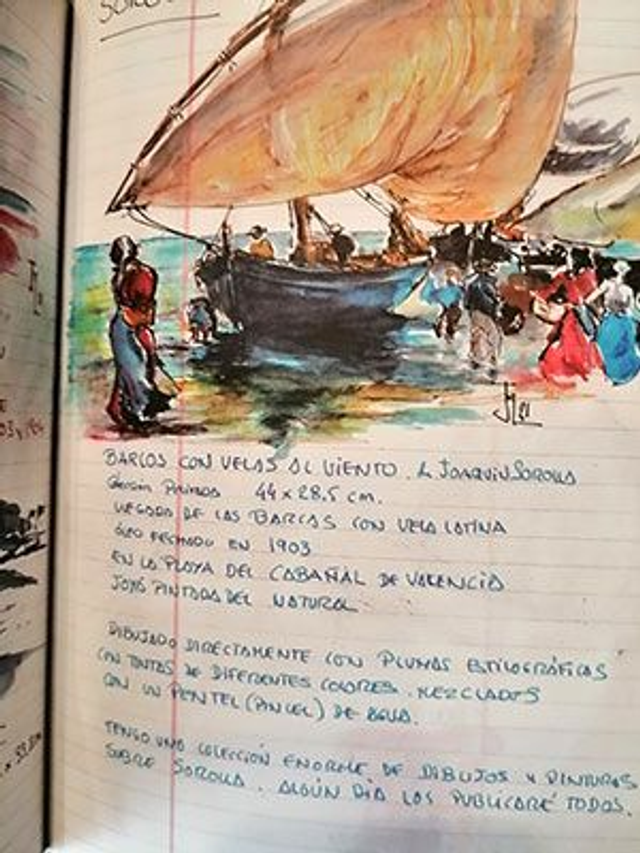 SORO
JL 21
BARCOS CON VELAS AL VIENTO. de JOAQUIN SOROLLA
44 x 28,5 cm.
LLEGADA DE LAS BARCAS CON VELA LATINA
ÓLEO FECHADO EN 1903
EN LA PLAYA DEL CABAÑAL DE VALENCIA
JOYA PINTADA DEL NATURAL
DIBUJADO DIRECTAMENTE CON PLUMAS ESTILOGRÁFICAS
CON TINTAS DE DIFERENTES COLORES. MEZCLADOS
CON UN PENTEL (PINCEL) DE AGUA.
TENGO UNA COLECCIÓN ENORME DE DIBUJOS Y PINTURAS
SOBRE SOROLLA. ALGÚN DÍA LOS PUBLICARÉ TODOS.